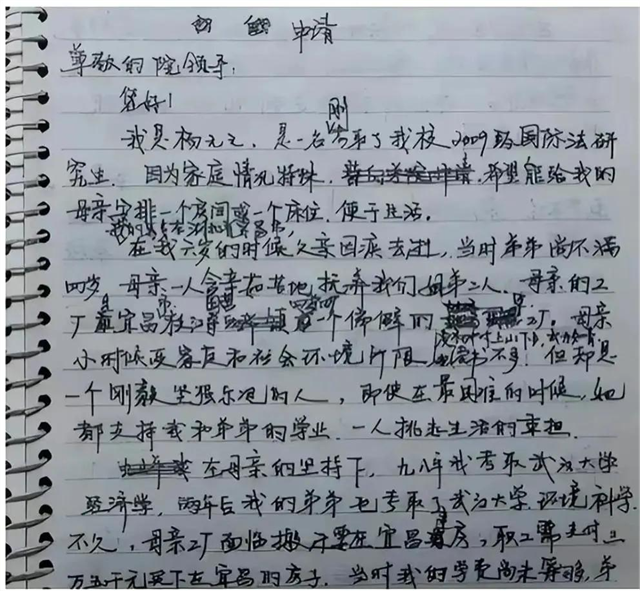 申请
尊敬的院领导:
您好!
刚
我是杨元元,是一名考取了我校2009级国际法研
究生. 因为家庭情况特殊,希望能给我的
母亲安排一个房间或一个床位,便于生活。
在我六岁的时候父亲因病去世,当时弟弟尚不满
四岁 母亲一人含辛茹苦地抚养我们姐弟二人. 母亲的工
厂 宜昌 一个偏僻的 工厂。母亲
小时候受家庭和社会环境所限 读书不多,但却是
一个刚毅坚强乐观的人,即使在最困难的时候,她
都支持我和弟弟的学业.一人挑起生活的重担.
在母亲的坚持下,九八年我考取武汉大学
经济学,两年后我的弟弟也考取了武汉大学环境科学.
不久,母亲工厂面临搬 在宜昌 房,职工需支付三
万五千元买下在宜昌的房子. 当时我的学费尚未筹够,弟